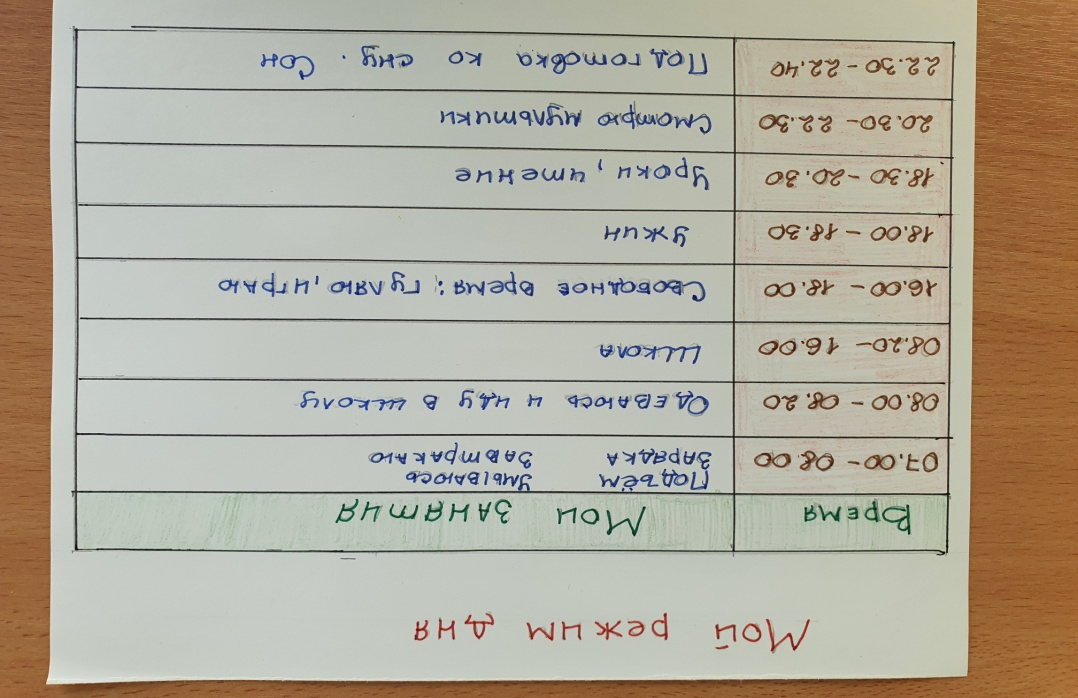 Мой режим дня
Время Мои занятия
07.00 - 08.00 Подъём Умываюсь
Зарядка Завтракаю
08.00 - 08.20 Одеваюсь и иду в школу
08.20 - 16.00 Школа
16.00 - 18.00 Свободное время: гуляю, играю
18.00 - 18.30 Ужин
18.30 - 20.30 Уроки, чтение
20.30 - 22.30 Смотрю мультики
22.30 - 22.40 Подготовка ко сну. Сон